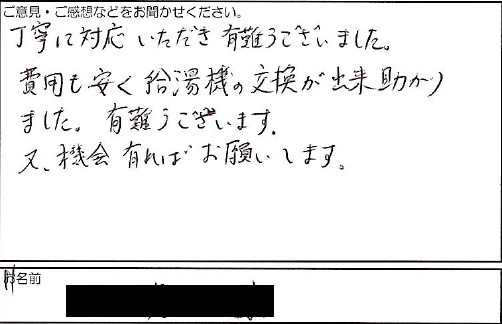 ご意見・ご感想などをお聞かせください。
丁寧に対応いただき有難うございました。
費用も安く給湯機の交換が出来助かり
ました。有難うございます。
又、機会有ればお願いします。
お名前